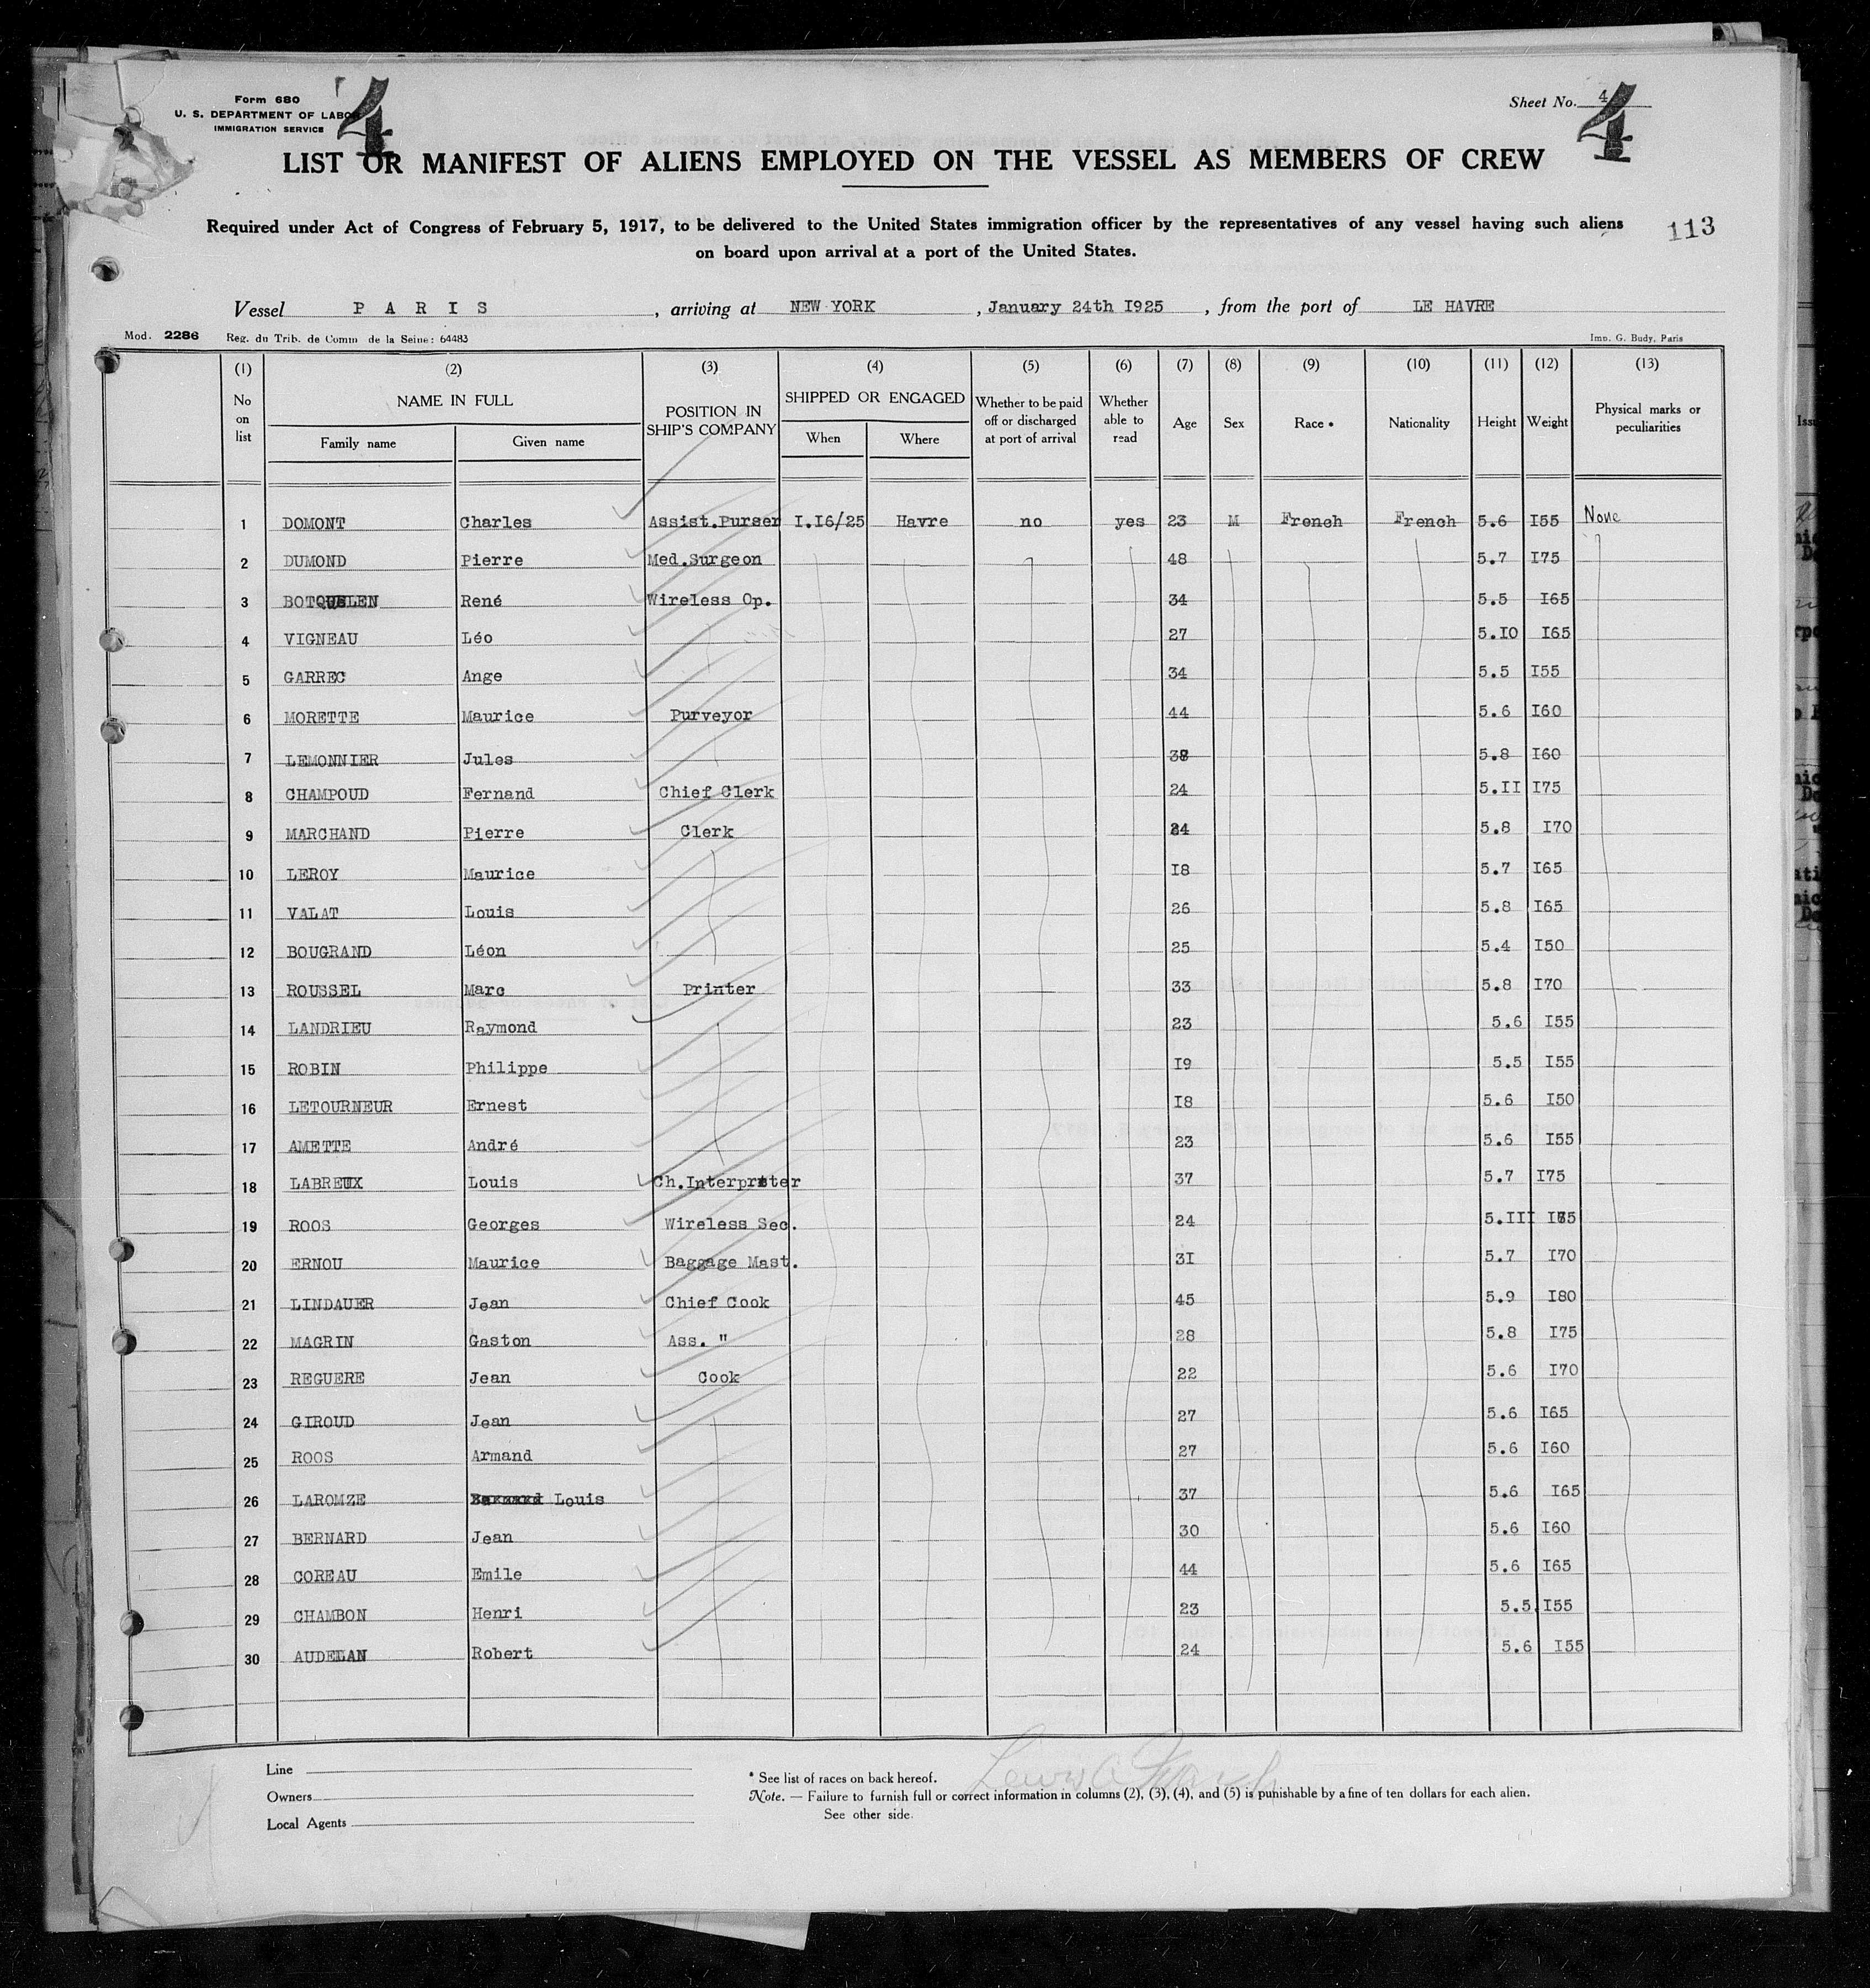 Form 680
U. S. DEPARTMENT OF LABOR
IMMIGRATION SERVICE
4
Sheet No. 4
4
LIST OR MANIFEST OF ALIENS EMPLOYED ON THE VESSEL AS MEMBERS OF CREW
Required under Act of Congress of February 5, 1917, to be delivered to the United States immigration officer by the representatives of any vessel having such aliens
on board upon arrival at a port of the United States.
113
Vessel P A R I S , arriving at NEW YORK , January 24th I925 , from the port of LE HAVRE
Mod. 2286 Reg. du Trib. de Comm de la Seine: 64483 Imp. G. Budy, Paris
(1) (2) (3) (4) (5) (6) (7) (8) (9) (10) (11) (12) (13)
No on list NAME IN FULL Family name Given name POSITION IN SHIP'S COMPANY SHIPPED OR ENGAGED When Where Whether to be paid off or discharged at port of arrival Whether able to read Age Sex Race * Nationality Height Weight Physical marks or peculiarities
1 DOMONT Charles Assist.Purser I.I6/25 Havre no yes 23 M French French 5.6 I55 None
2 DUMOND Pierre Med.Surgeon 48 5.7 I75
3 René Wireless Op. 34 5.5 I65
4 VIGNEAU Léo 27 5.IO I65
5 GARREC Ange 34 5.5 I55
6 MORETTE Maurice Purveyor 44 5.6 I60
7 LEMONNIER Jules 38 5.8 I60
8 CHAMPOUD Fernand Chief Clerk 24 5.II I75
9 MARCHAND Pierre Clerk 24 5.8 I70
10 LEROY Maurice I8 5.7 I65
11 VALAT Louis 26 5.8 I65
12 BOUGRAND Léon 25 5.4 I50
13 ROUSSEL Marc Printer 33 5.8 I70
14 LANDRIEU Raymond 23 5.6 I55
15 ROBIN Philippe I9 5.5 I55
16 LETOURNEUR Ernest I8 5.6 I50
17 AMETTE André 23 5.6 I55
18 LABREUX Louis Ch.Interpreter 37 5.7 I75
19 ROOS Georges Wireless Sec. 24 5.III
20 ERNOU Maurice Baggage Mast. 3I 5.7 I70
21 LINDAUER Jean Chief Cook 45 5.9 I80
22 MAGRIN Gaston Ass. " 28 5.8 I75
23 REGUERE Jean Cook 22 5.6 I70
24 GIROUD Jean 27 5.6 I65
25 ROOS Armand 27 5.6 I60
26 LAROMZE Louis 37 5.6 I65
27 BERNARD Jean 30 5.6 I60
28 COREAU Emile 44 5.6 I65
29 CHAMBON Henri 23 5.5 I55
30 AUDELAN Robert 24 5.6 I55
Line
Owners
Local Agents
* See list of races on back hereof.
Note. — Failure to furnish full or correct information in columns (2), (3), (4), and (5) is punishable by a fine of ten dollars for each alien.
See other side.